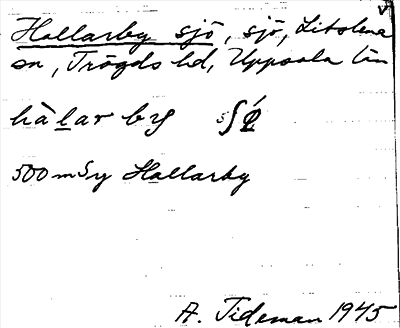 Hallarby sjö, sjö, Litslena
sn, Trögds hd, Uppsala län
hàlar by
500 m Sy Hallarby
A. Tideman 1945